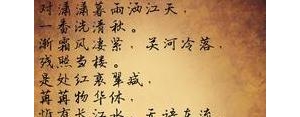 对潇潇暮雨洒江天，
一番洗清秋。
渐霜风凄紧，关河冷落，
残照当楼。
是处红衰翠减，
苒苒物华休，
惟有长江水，无语东流